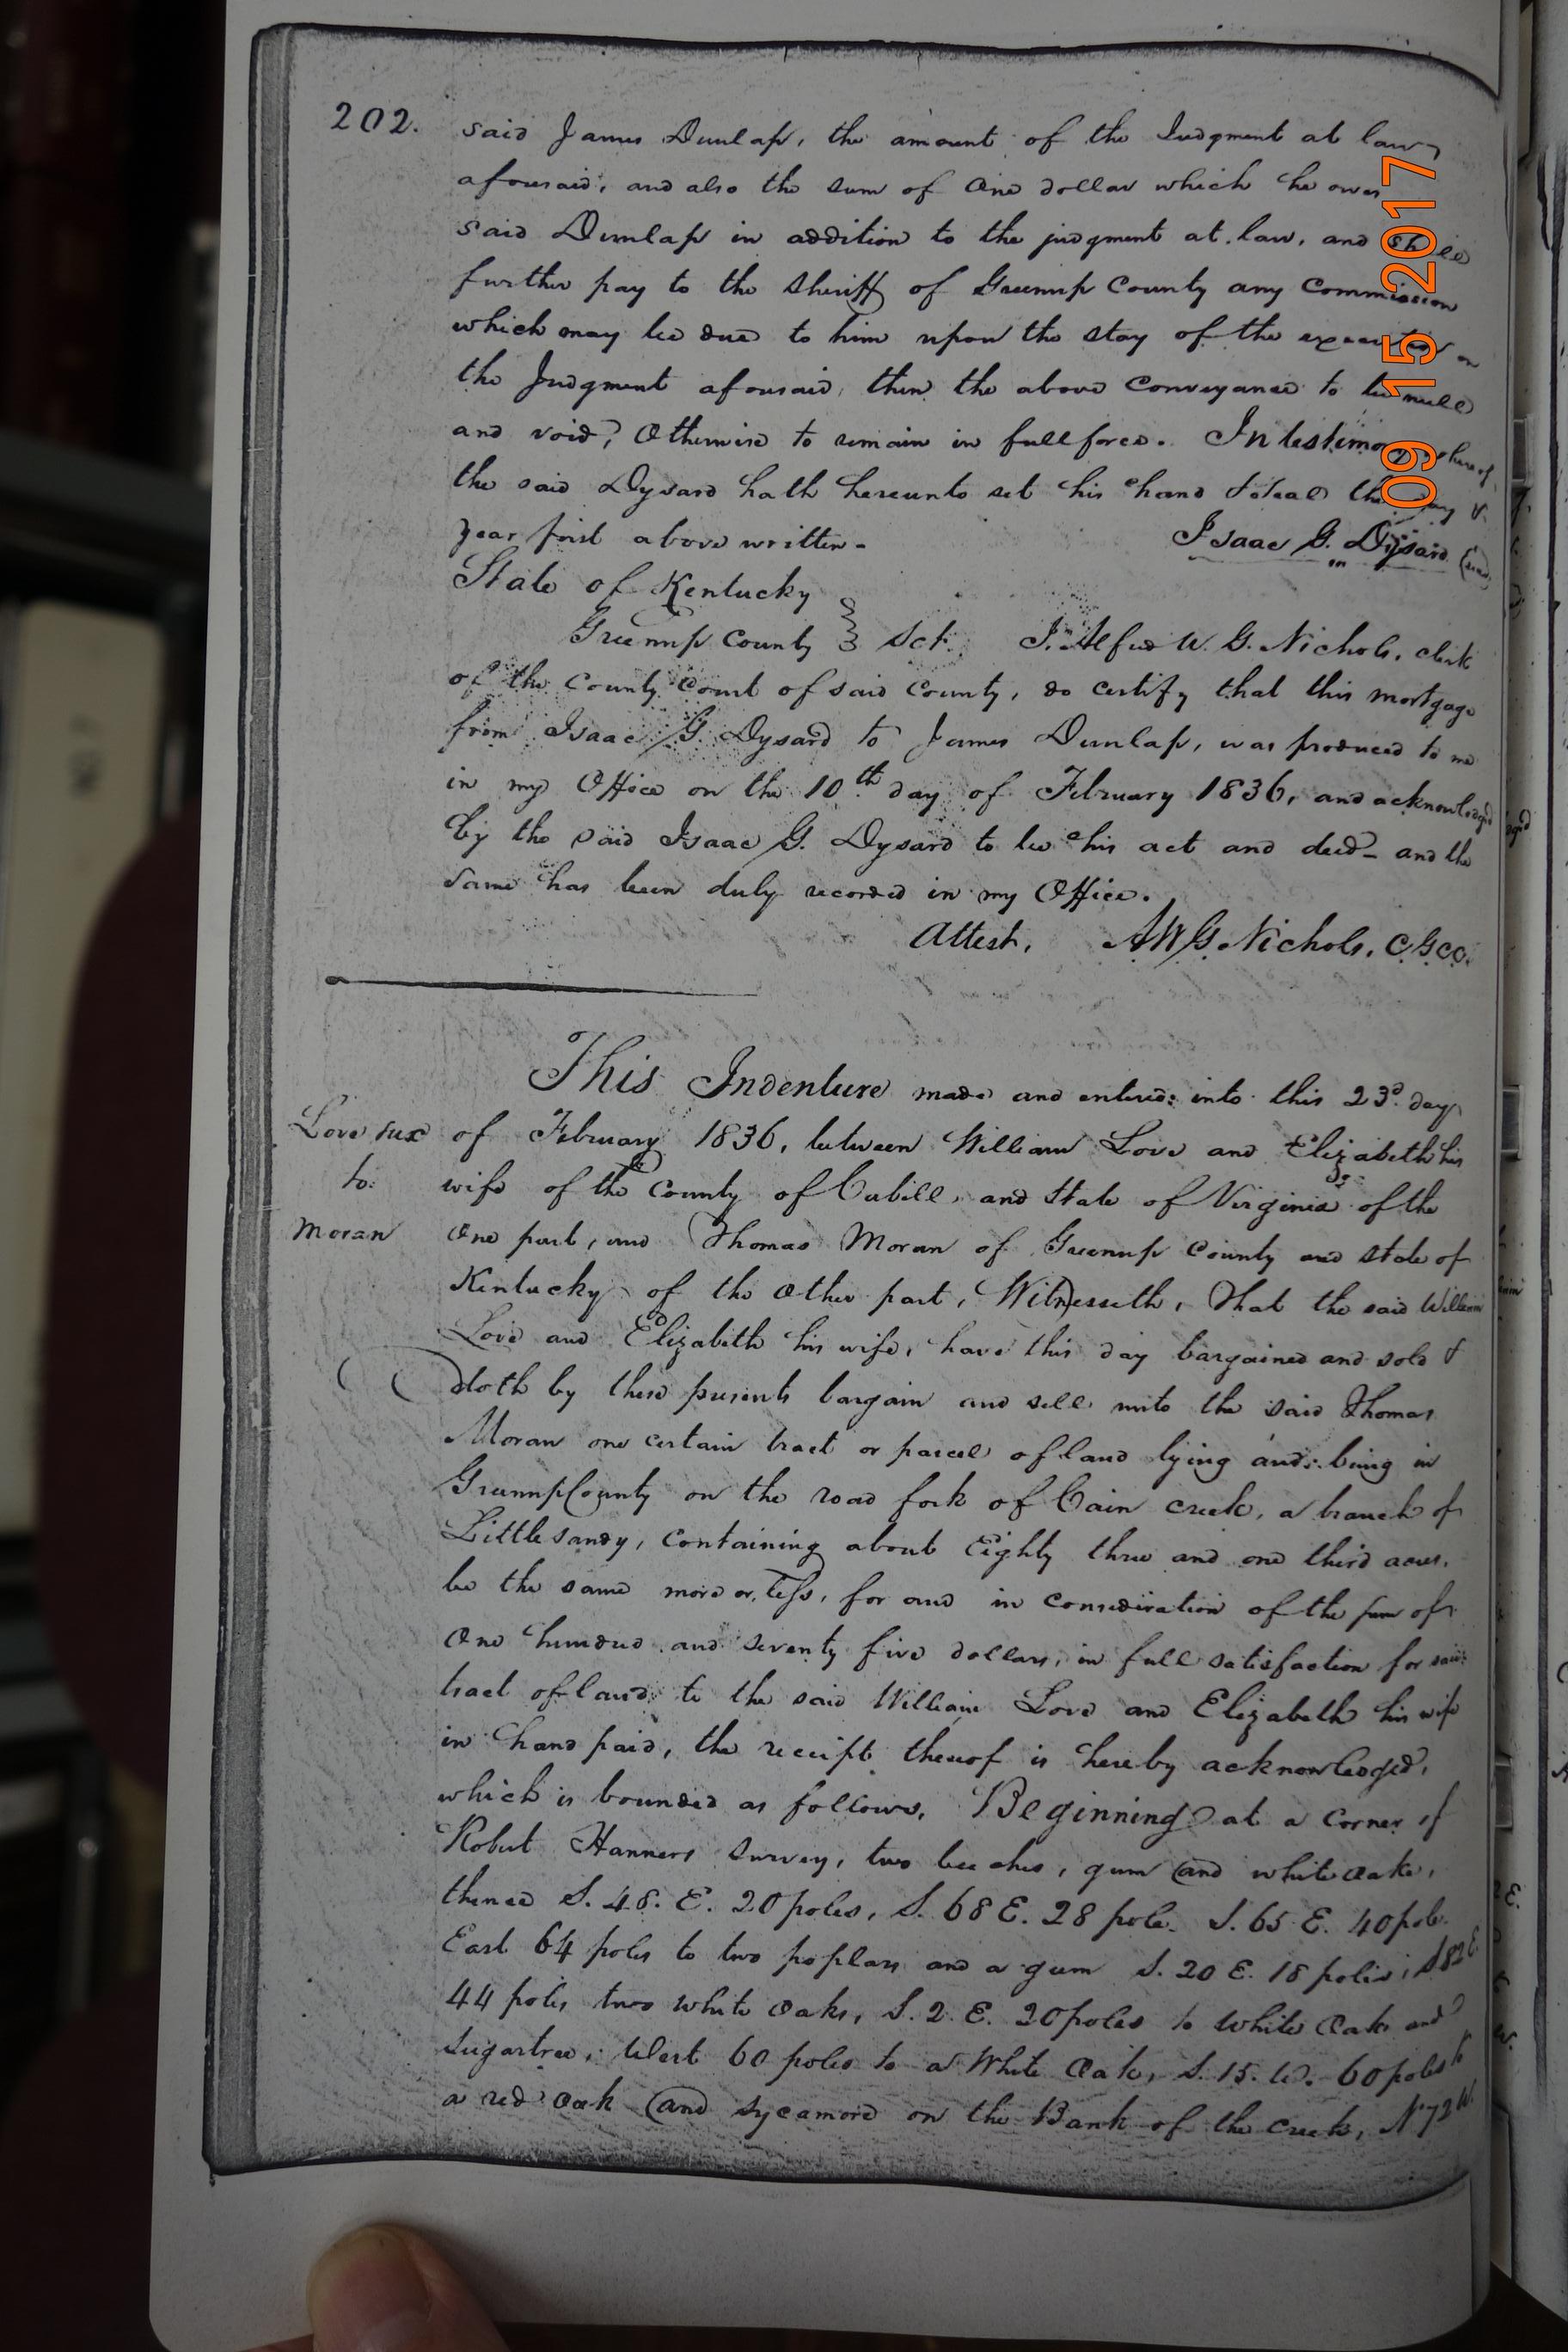 202.
said James Dunlap, the amount of the Judgment at law
aforesaid, and also the sum of One dollar which he owes
said Dunlap in addition to the judgment at law, and shall
further pay to the Sheriff of Greenup County any Commission
which may be due to him upon the stay of the execution on
the Judgment aforesaid, then the above Conveyance to be null
and void, Otherwise to remain in full force. In testimony whereof
the said Dysard hath hereunto set his hand & seal the day &
year first above written -
Isaac G. Dysard (seal)
State of Kentucky
Greenup County } Sct. I. Alfred W. G. Nichols, clerk
of the County Court of said County, do certify that this mortgage
from Isaac G. Dysard to James Dunlap, was produced to me
in my Office on the 10th day of February 1836, and acknowledged
by the said Isaac G. Dysard to be his act and deed - and the
same has been duly recorded in my Office.
Attest, AWG. Nichols, C.G.C.C.
This Indenture made and entered into this 23d day
Love & ux
to.
Moran
of February 1836, between William Love and Elizabeth his
wife of the County of Cabill, and State of Virginia of the
One part, and Thomas Moran of Greenup County and State of
Kentucky of the Other part, Witnesseth, That the said William
Love and Elizabeth his wife, have this day bargained and sold &
doth by these presents bargain and sell unto the said Thomas
Moran one certain tract or parcel of land lying and being in
Greenup County on the road fork of Cain creek, a branch of
Little sandy, containing about Eighty three and one third acres,
be the same more or less, for and in consideration of the sum of
One hundred and seventy five dollars, in full satisfaction for said
tract of land, to the said William Love and Elizabeth his wife
in hand paid, the receipt thereof is hereby acknowledged,
which is bounded as follows, Beginning at a corner of
Robert Hanners survey, two beeches, gum and white oake,
thence S. 48. E. 20 poles, S. 68 E. 28 pole. S. 65 E. 40 pole.
East 64 poles to two poplars and a gum S. 20 E. 18 poles, S 82 E.
44 poles two white Oaks, S. 2. E. 20 poles to White Oak and
sugartree, West 60 poles to a White Oak, S. 15. W. 60 poles to
a red Oak and sycamore on the Bank of the creek, N 72 W.
09 15 2017